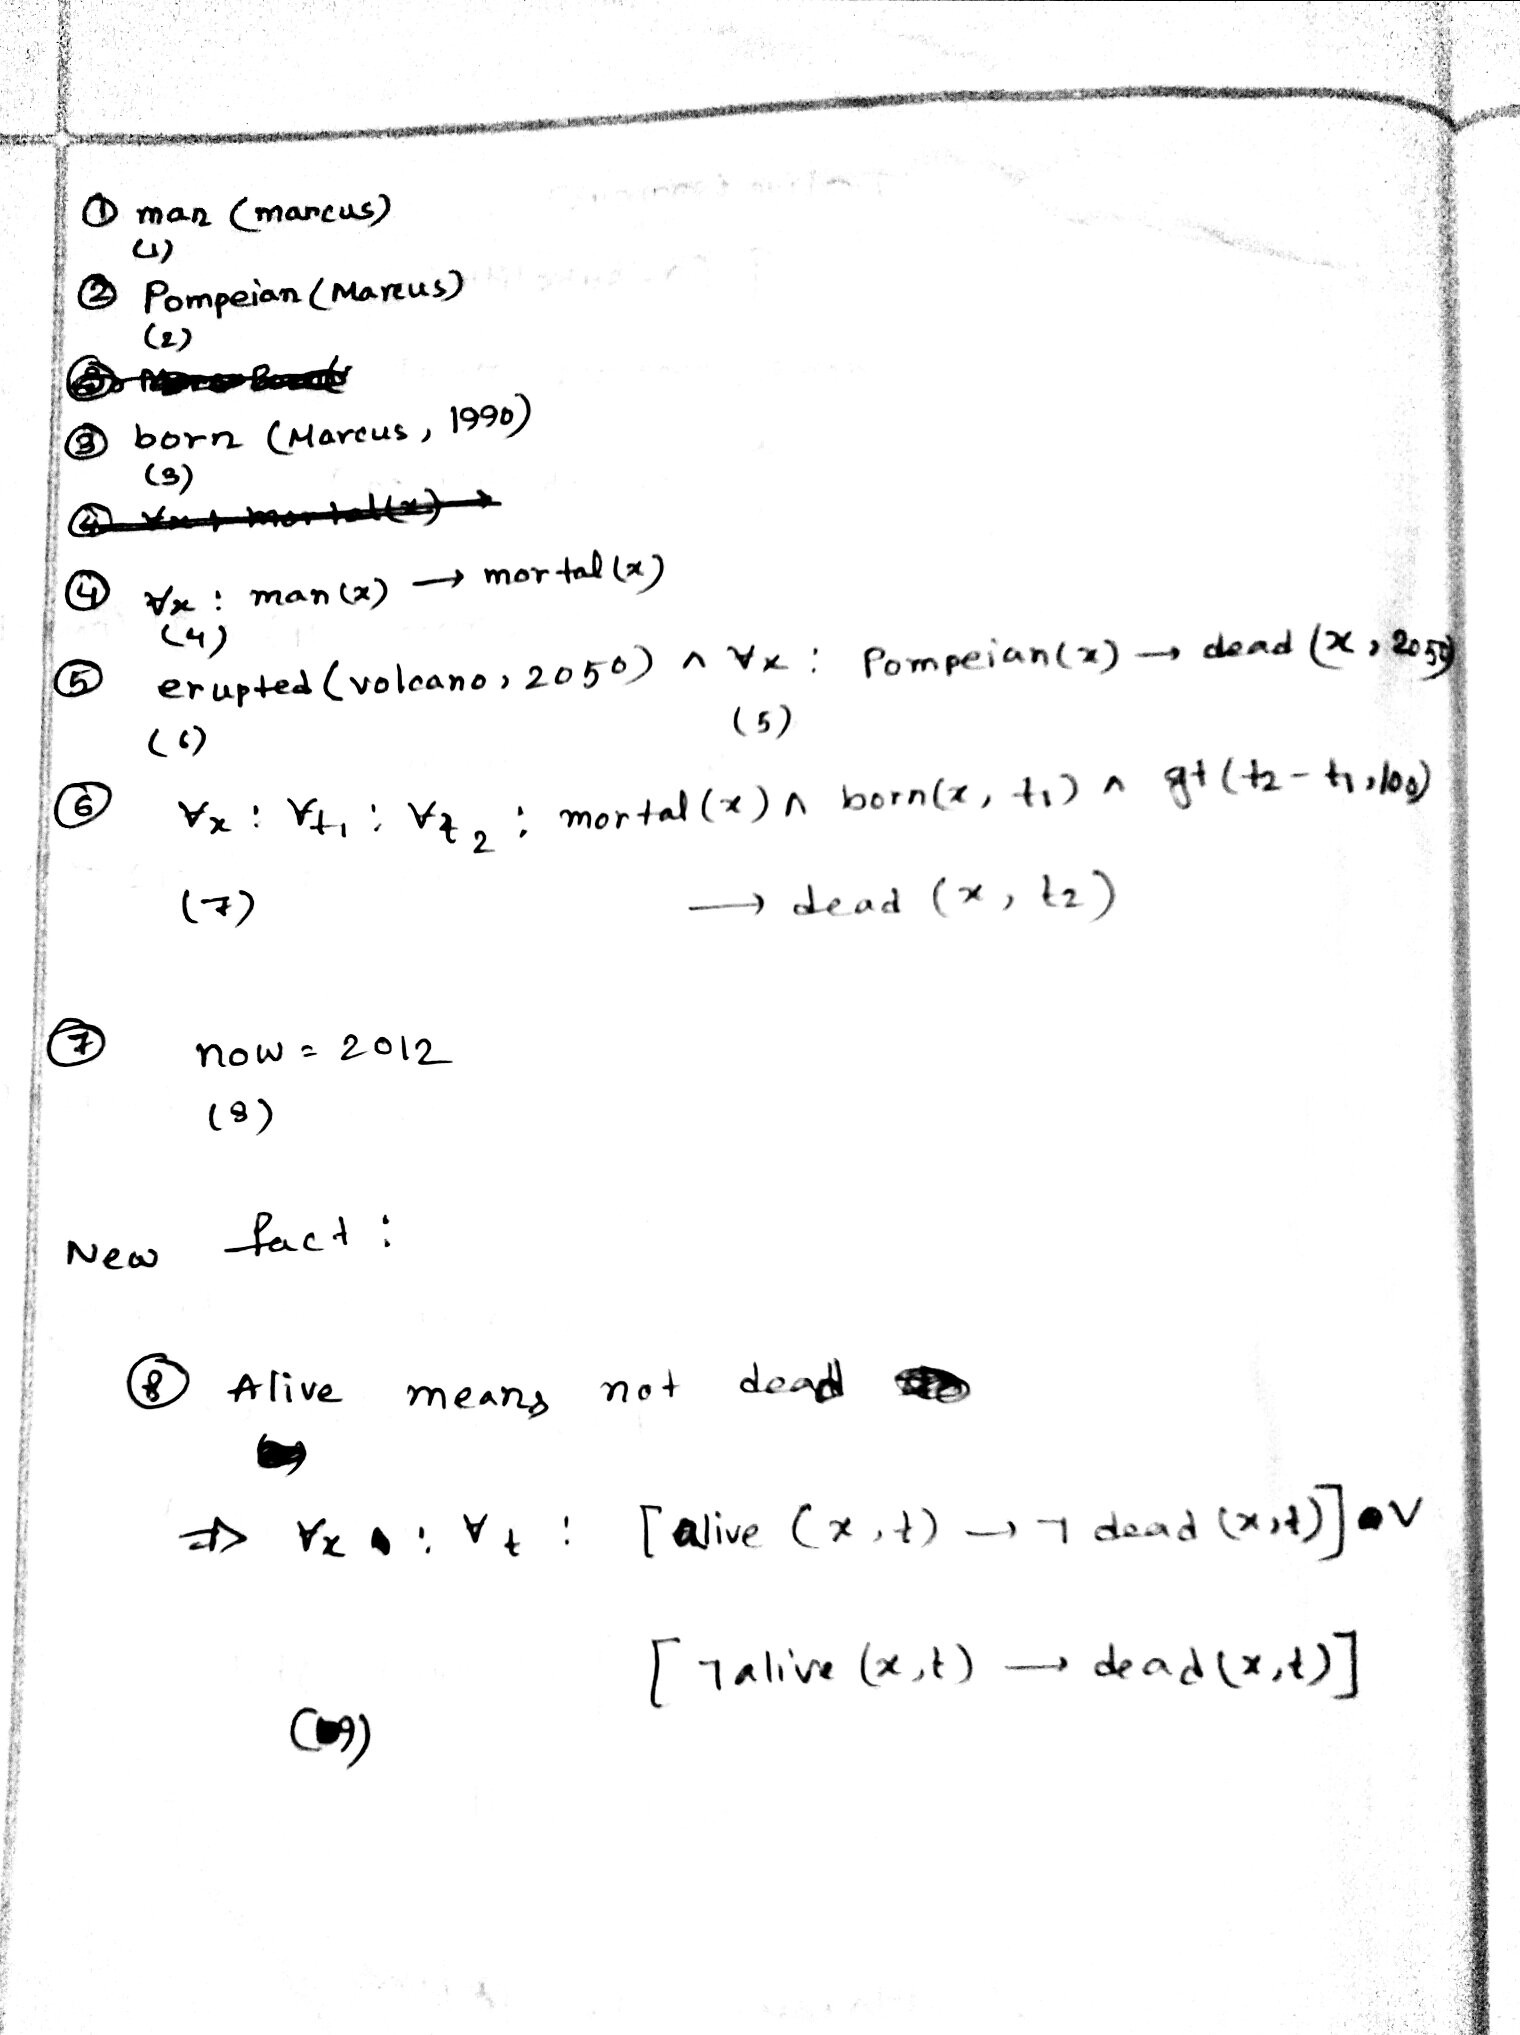 ① man (marcus)
(1)
② Pompeian (Marcus)
(2)
③ born (Marcus, 1990)
(3)
④ ∀x : mortal(x) →
④ ∀x : man(x) → mortal(x)
(4)
⑤ erupted (volcano, 2050) ∧ ∀x : Pompeian(x) → dead (x, 2050)
(6) (5)
⑥ ∀x : ∀t₁ : ∀t₂ : mortal(x) ∧ born(x, t₁) ∧ gt(t₂ - t₁, 100)
(7) → dead (x, t₂)
⑦ now = 2012
(8)
New fact :
⑧ Alive means not dead
⇒ ∀x : ∀t : [alive (x, t) → ¬ dead (x,t)] ∨
[¬alive (x,t) → dead(x,t)]
(9)